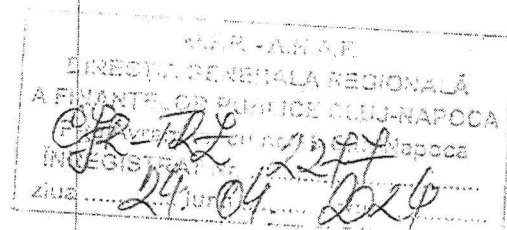 M.F.P. - A.N.A.F.
DIRECTIA GENERALA REGIONALĂ
A FINANTELOR PUBLICE CLUJ-NAPOCA
Napoca
INREGISTRAT Nr. 2277
ziua 24 luna 04 2024